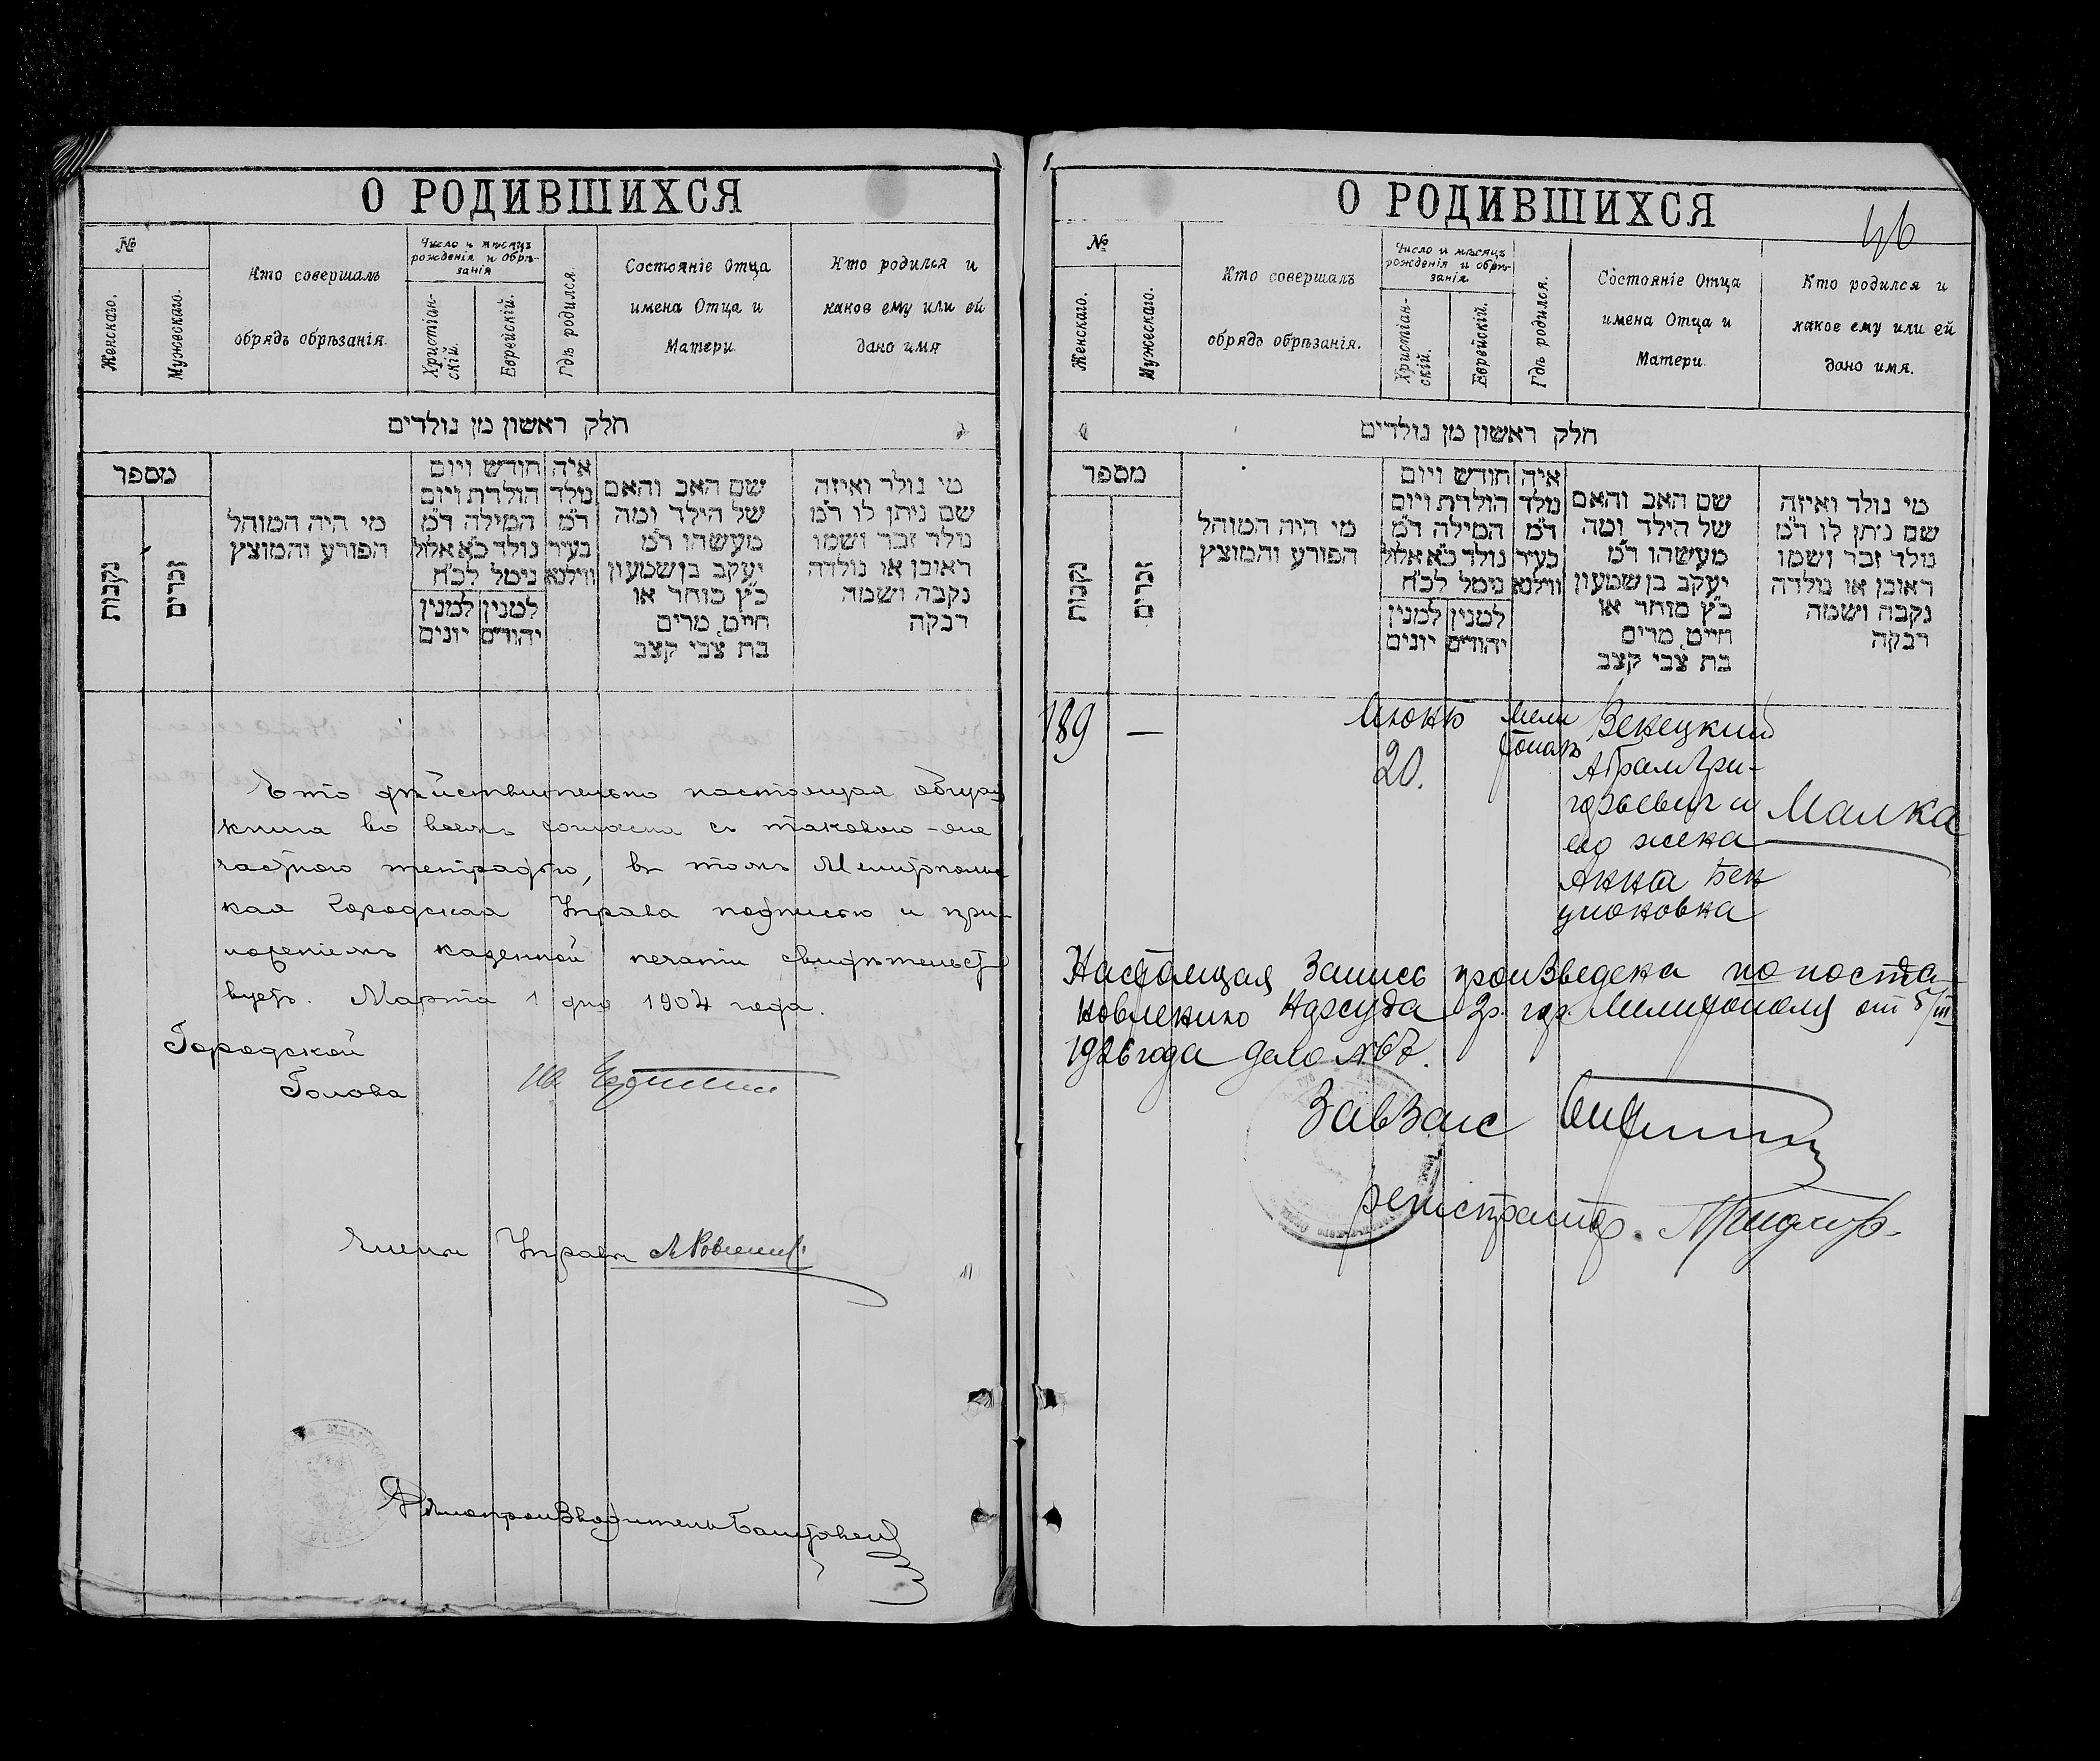 О РОДИВШИХСЯ
№
Женскаго.
Мужескаго.
Кто совершалъ
обрядъ обрѣзанія.
Число и мѣсяцъ
рожденія и обрѣ-
занія
Христіан-
скій.
Еврейскій.
Гдѣ родился.
Состояніе Отца
имена Отца и
Матери.
Кто родился и
какое ему или ей
дано имя
חלק ראשון מן נולדים
מספר
נקבות
זכרים
מי היה המוהל
הפורע והמוצץ
חודש ויום
הולדת ויום
המילה ד״מ
נולד כ״א אלול
נימל לכ״ח
למנין
יהודים
למנין
יונים
איה
נולד
ד״מ
בעיר
ווילנא
שם האב והאם
של הילד ומה
מעשהו ד״מ
יעקב בן שמעון
כ״ץ סוחר או
חייט מרים
בת צבי קצב
מי נולד ואיזה
שם ניתן לו ד״מ
נולד זכר ושמו
ראובן או נולדה
נקבה ושמה
רבקה
Что действительно настоящая
книга во всемъ согласна съ таковою
тетрадью, въ томъ Мелитопольс
кая Городская Управа подписью и при-
ложеніемъ казенной печати свидѣтельст
вуетъ. Марта 1 дня 1904 года.
Городской
Голова
Членъ Управы
Дѣлопроизводитель
О РОДИВШИХСЯ
46
№
Женскаго.
Мужескаго.
Кто совершалъ
обрядъ обрѣзанія.
Число и мѣсяцъ
рожденія и обрѣ-
занія.
Христіан-
скій.
Еврейскій.
Гдѣ родился.
Состояніе Отца
имена Отца и
Матери.
Кто родился и
какое ему или ей
дано имя.
חלק ראשון מן נולדים
מספר
נקבות
זכרים
מי היה המוהל
הפורע והמוצץ
חודש ויום
הולדת ויום
המילה ד״מ
נולד כ״א אלול
נימל לכ״ח
למנין
יהודים
למנין
יונים
איה
נולד
ד״מ
בעיר
ווילנא
שם האב והאם
של הילד ומה
מעשהו ד״מ
יעקב בן שמעון
כ״ץ סוחר או
חייט מרים
בת צבי קצב
מי נולד ואיזה
שם ניתן לו ד״מ
נולד זכר ושמו
ראובן או נולדה
נקבה ושמה
רבקה
189 —
Июнь
20.
Мели
тополь
Венецкий
Абрам Гри-
горьевич и
его жена
Анна Бен
ционовна
Малка
Настоящая запись произведена по поста-
новлению Нарсуда 2 р. гор. Мелитополя от 5/III
1926 года дело №67.
ЗавЗагс
регистратор.